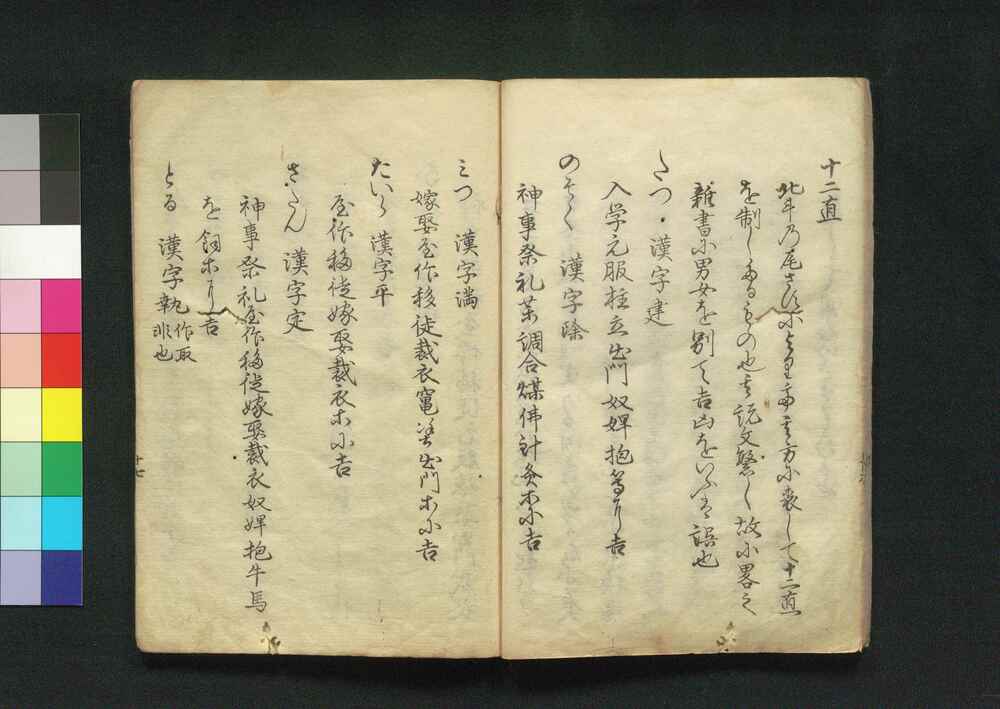 十二直
北斗乃尾さすにより而其方に表して十二直
を制したるもの也其説文繁く故に畧之
雑書に男女を別て吉凶をいふは誤也
たつ 漢字建
入学元服柱立出門奴婢抱等に吉
のそく 漢字除
神事祭礼薬調合煤佛針灸木に吉
みつ 漢字満
嫁娶屋作移徙裁衣竃塗出門木に吉
たいら 漢字平
屋作移徙嫁娶裁衣木に吉
さたん 漢字定
神事祭礼屋作移徙嫁娶裁衣奴婢抱牛馬
を飼木に吉
とる 漢字執 作取非也
十七